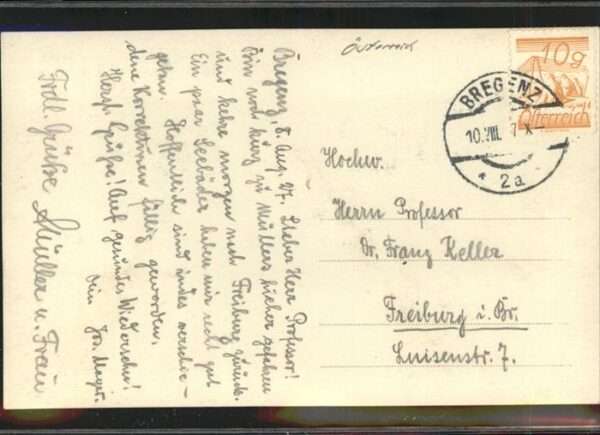 Bregenz, 8. Aug. 27. Lieber Herr Professor!
Bin noch kurz zu Müllers hierher gefahren
und kehre morgen nach Freiburg zurück.
Ein paar Seebäder haben mir recht gut
getan. Hoffentlich sind indes verschie-
dene Korrekturen fällig geworden.
Herzl. Grüße! Auf gesundes Wiedersehn!
Dein Jos. Mayer.
Frdl. Grüße Müller u. Frau
Österreich
10g
Österreich
BREGENZ 1
10.VIII. 27
* 2a
Hochw.
Herrn Professor
Dr. Franz Keller
Freiburg i. Br.
Luisenstr. 7.